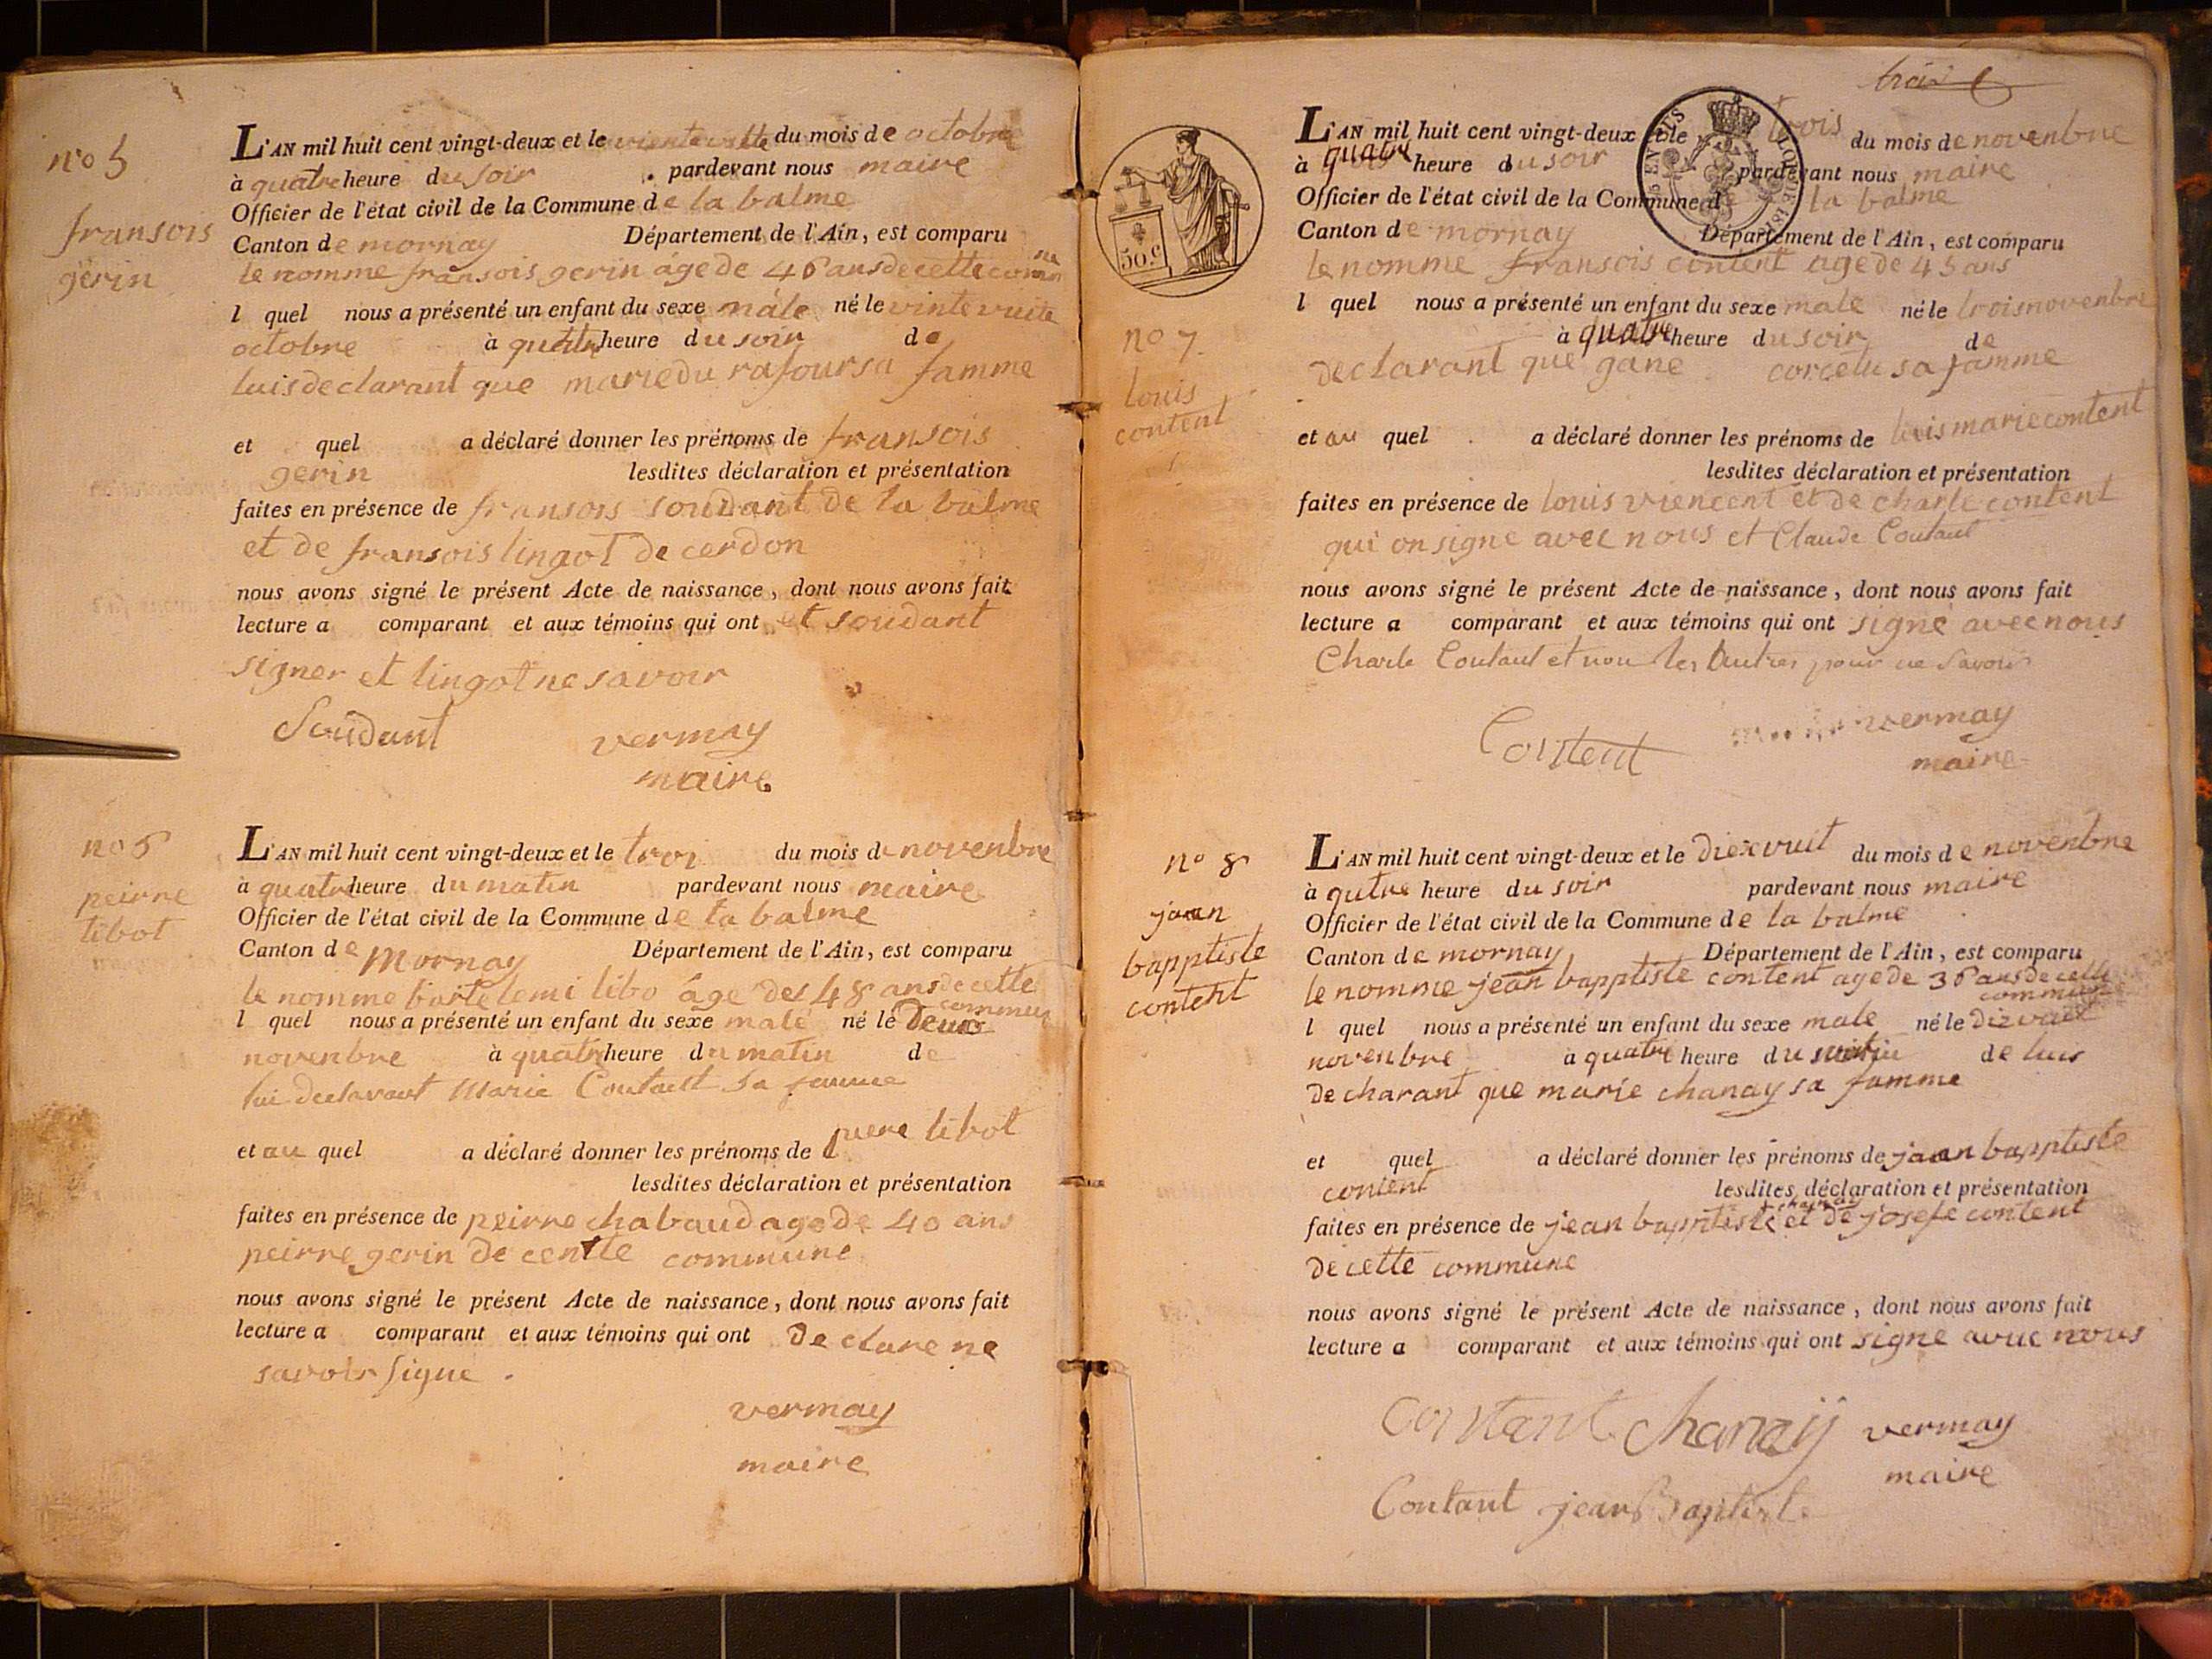 n° 5
fransois
gerin
L'AN mil huit cent vingt-deux et le vinte vuite du mois de octobre
à quatre heure du soir pardevant nous maire
Officier de l'état civil de la Commune de la balme
Canton de mornay Département de l'Ain, est comparu
le nomme fransois gerin âge de 46 ans de cette comm ne
l quel nous a présenté un enfant du sexe male né le vinte vuite
octobre à quatre heure du soir de
luis declarant que marie du rafour sa famme
et quel a déclaré donner les prénoms de fransois
gerin lesdites déclaration et présentation
faites en présence de fransois soudant de la balme
et de fransois lingot de cerdon
nous avons signé le présent Acte de naissance, dont nous avons fait
lecture a comparant et aux témoins qui ont et soudant
signer et lingot ne savoir
Soudant vermay
maire
n° 6
peirne
tibot
L'AN mil huit cent vingt-deux et le troi du mois de novenbre
à quatre heure du matin pardevant nous maire
Officier de l'état civil de la Commune de la balme
Canton de Mornay Département de l'Ain, est comparu
le nomme bartelemi tibo âge des 48 ans de cette
commun
l quel nous a présenté un enfant du sexe male né le Deux
novenbre à quatre heure du matin de
lui declarant Marie Contact sa femme
et au quel a déclaré donner les prénoms de piere tibot
lesdites déclaration et présentation
faites en présence de peirne chabaud age de 40 ans
peirne gerin de centte commune
nous avons signé le présent Acte de naissance, dont nous avons fait
lecture a comparant et aux témoins qui ont de clare ne
savoir signe .
vermay
maire
trois
50. c
n° 7
louis
content
L'AN mil huit cent vingt-deux et le trois du mois de novenbre
à quatre heure du soir pardevant nous maire
Officier de l'état civil de la Commune de la balme
Canton de mornay Département de l'Ain, est comparu
le nomme fransois content age de 45 ans
l quel nous a présenté un enfant du sexe male né le trois novenbre
à quatre heure du soir de
declarant que gane corcelu sa famme
et au quel a déclaré donner les prénoms de luis marie content
lesdites déclaration et présentation
faites en présence de louis viencent et de charle content
qui on signe avec nous et Claude Contant
nous avons signé le présent Acte de naissance, dont nous avons fait
lecture a comparant et aux témoins qui ont signé avec nous
Charle Contant et non les Autres pour ne Savoir
Content vermay
maire
n° 8
jaan
bapptiste
content
L'AN mil huit cent vingt-deux et le diexvuit du mois de novenbre
à qutre heure du soir pardevant nous maire
Officier de l'état civil de la Commune de la balme
Canton de mornay Département de l'Ain, est comparu
le nomme jean bapptiste content age de 36 ans de cette
commune
l quel nous a présenté un enfant du sexe male né le
novenbre à quatre heure du matin de luis
de charant que marie chanay sa famme
et quel a déclaré donner les prénoms de jaan bapptiste
content lesdites déclaration et présentation
faites en présence de jean bapptiste chanay et de josefe content
de cette commune
nous avons signé le présent Acte de naissance, dont nous avons fait
lecture a comparant et aux témoins qui ont signe avuc nous
Contant chanay vermay
maire
Contant jean Baptiste